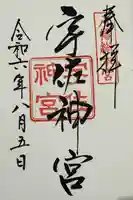 奉拝
宇佐神宮
宇佐
神宮
令和六年八月五日